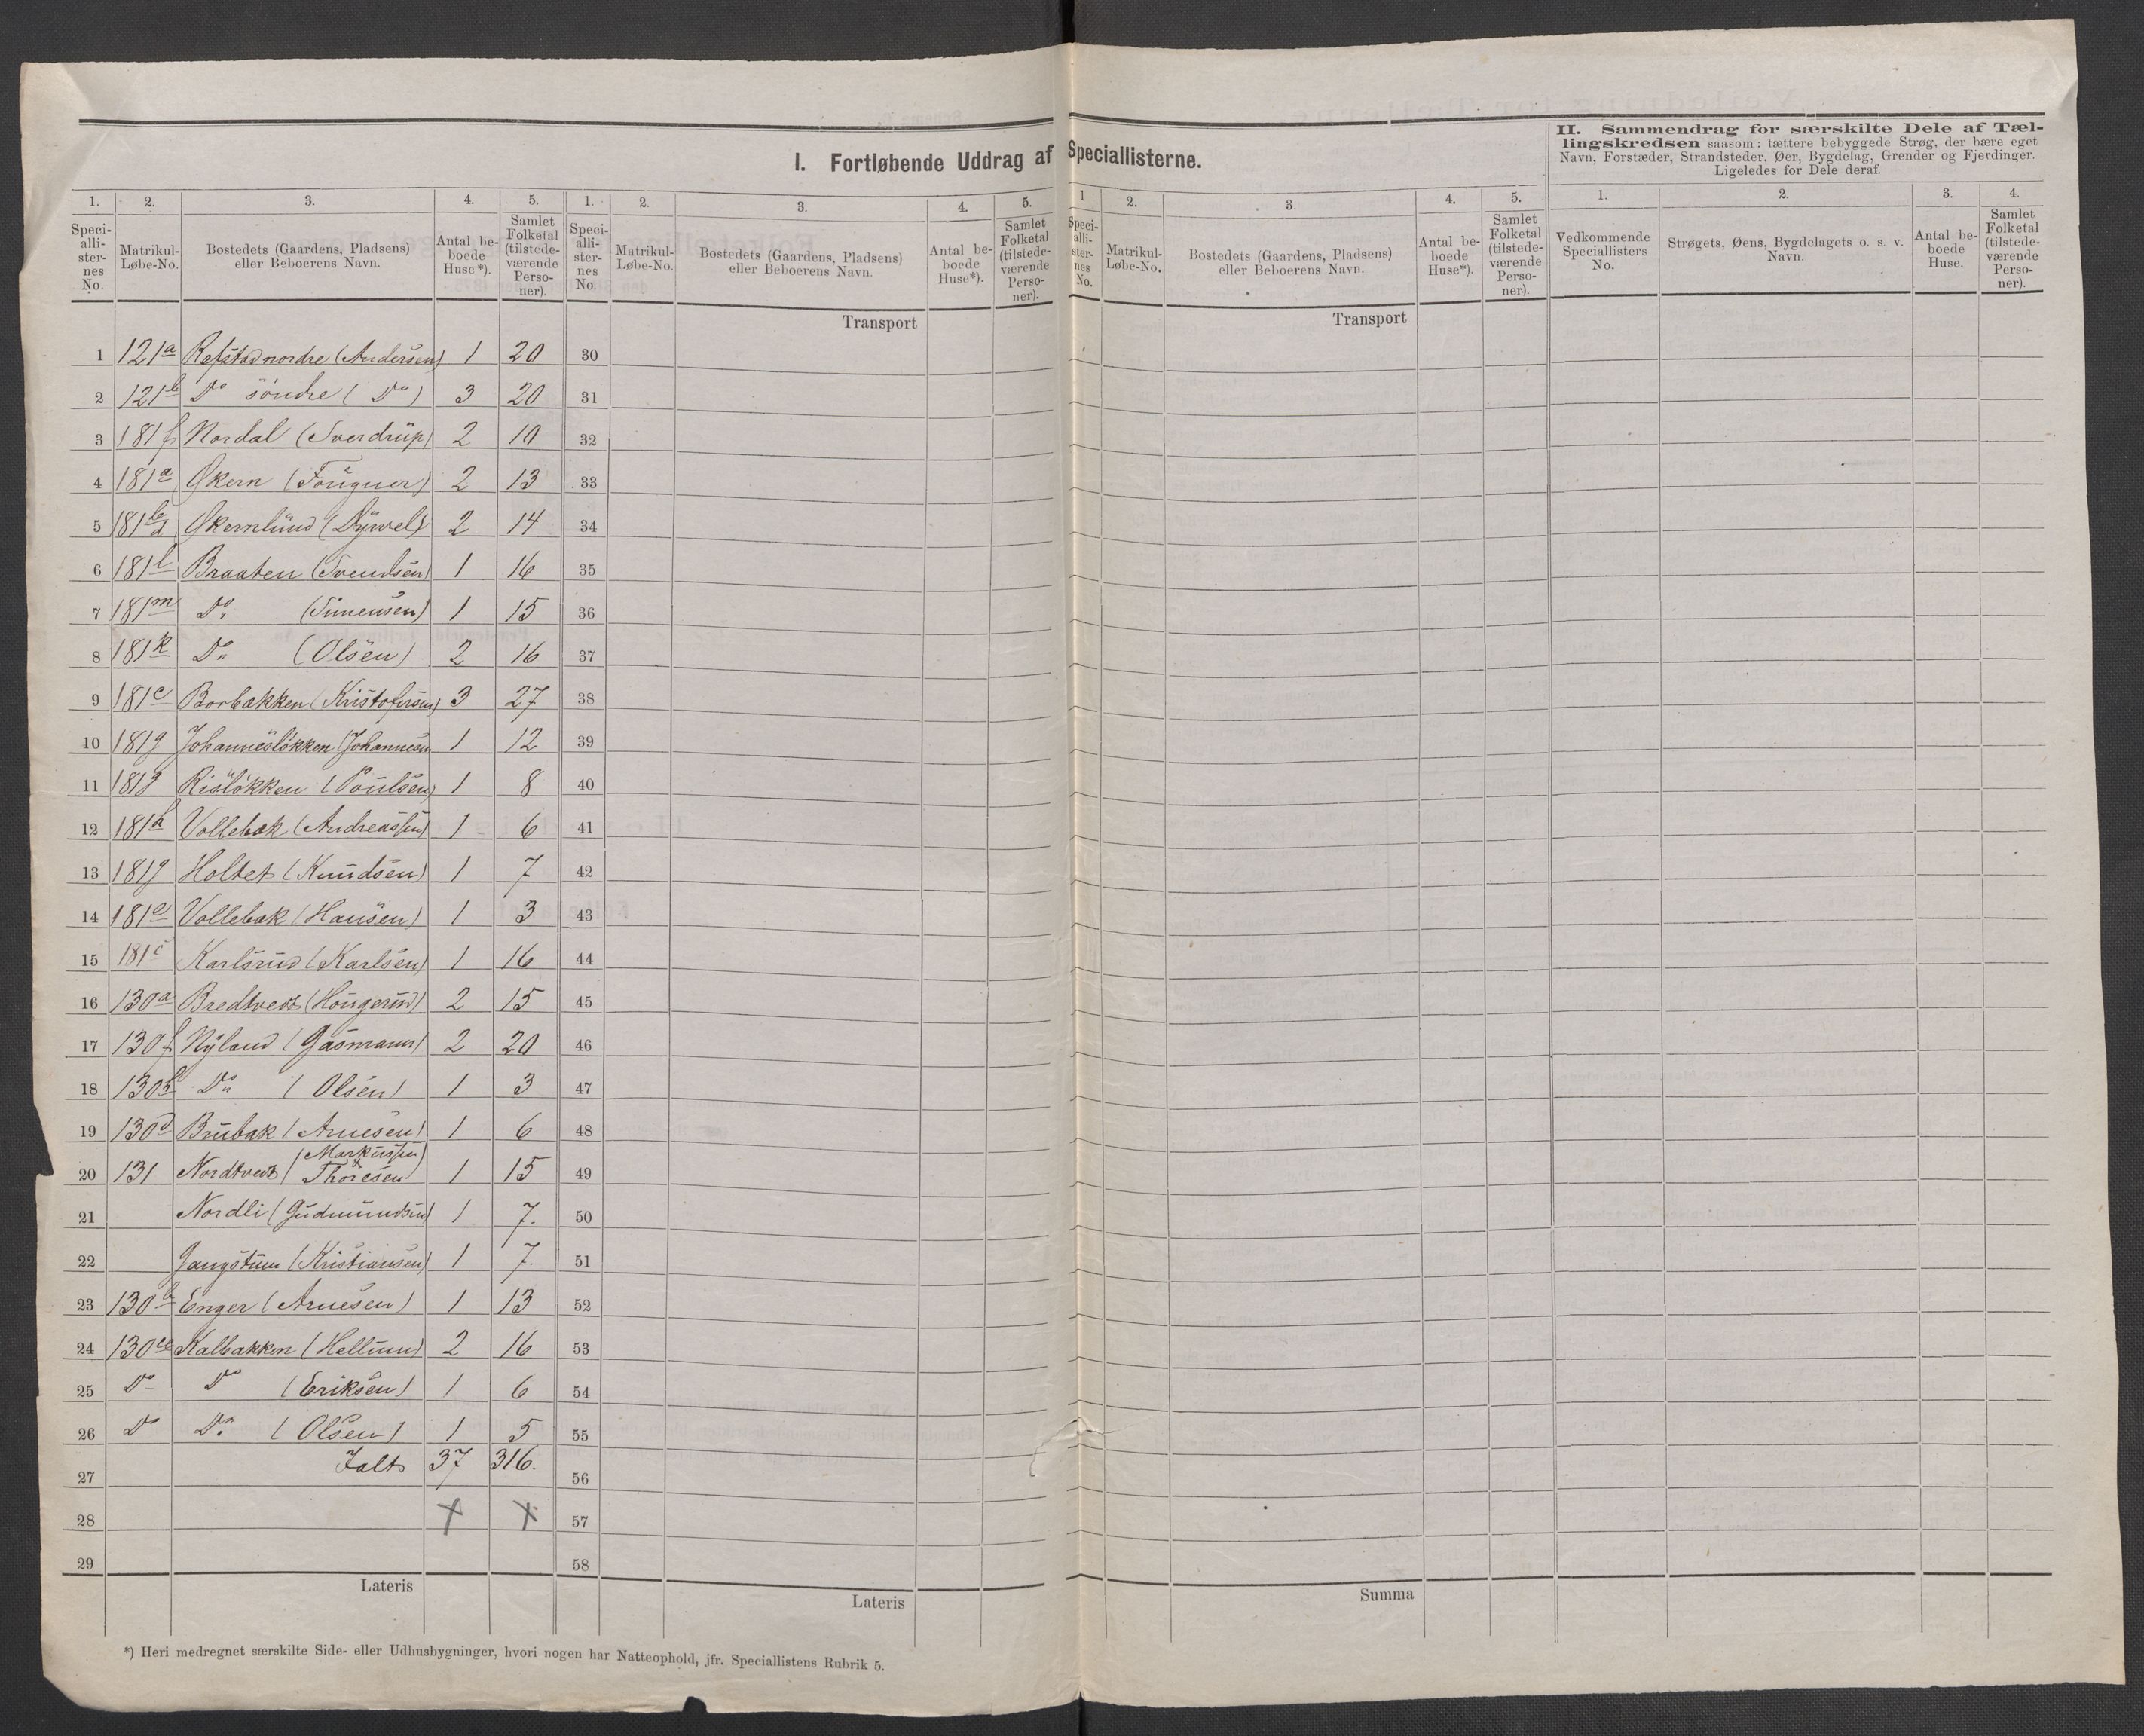 I. Fortløbende Uddrag af Speciallisterne.
II. Sammendrag for særskilte Dele af Tæl-
lingskredsen saasom: tættere bebyggede Strøg, der bære eget
Navn, Forstæder, Strandsteder, Øer, Bygdelag, Grender og Fjerdinger.
Ligeledes for Dele deraf.
1. 2. 3. 4. 5. 1. 2. 3. 4. 5. 1 2. 3. 4. 5. 1. 2. 3. 4.
Speci-
alli-
ster-
nes
No.
Matrikul-
Løbe-No.
Bostedets (Gaardens, Pladsens)
eller Beboerens Navn.
Antal be-
boede
Huse*).
Samlet
Folketal
(tilstede-
værende
Perso-
ner).
Speci-
alli-
ster-
nes
No.
Matrikul-
Løbe-No.
Bostedets (Gaardens, Pladsens)
eller Beboerens Navn.
Antal be-
boede
Huse*).
Samlet
Folketal
(tilstede-
værende
Perso-
ner).
Speci-
alli-
ster-
nes
No.
Matrikul-
Løbe-No.
Bostedets (Gaardens, Pladsens)
eller Beboerens Navn.
Antal be-
boede
Huse*).
Samlet
Folketal
(tilstede-
værende
Perso-
ner).
Vedkommende
Speciallisters
No.
Strøgets, Øens, Bygdelagets o. s. v.
Navn.
Antal be-
boede
Huse.
Samlet
Folketal
(tilstede-
værende
Perso-
ner).
Transport Transport
1 121a Refstad nordre (Andersen) 1 20 30
2 121b Do söndre (Do) 3 20 31
3 181f Nordal (Sverdrup) 2 10 32
4 181a Økern (Fougner) 2 13 33
5 181 Økernlund 2 14 34
6 181l Braaten (Svendsen) 1 16 35
7 181m Do. (Simensen) 1 15 36
8 181k Do (Olsen) 2 16 37
9 181c Borbakken (Kristofersen) 3 27 38
10 181g Johannesløkken (Johannesen 1 12 39
11 181g Risløkken (Poulsen) 1 8 40
12 181h Vollebæk (Andreassen) 1 6 41
13 181g Holtet (Knudsen) 1 7 42
14 181e Vollebæk (Hansen) 1 3 43
15 181i Karlsrud (Karlsen) 1 16 44
16 130a Bredtvedt (Hougerud) 2 15 45
17 130f Nyland (Gasmann) 2 20 46
18 Do (Olsen) 1 3 47
19 130d Brubak (Arnesen) 1 6 48
(Markussen)
20 131 Nordtvedt (Thoresen 1 15 49
21 Nordli (Gudmundsen) 1 7. 50
22 (Kristiansen) 1 7. 51
23 130b Enger (Arnesen) 1 13 52
24 Kalbakken (Hellum) 2 16 53
25 Do Do (Eriksen) 1 6 54
26 Do Do. (Olsen) 1 5 55
27 Ialt 37 316. 56
28 57
29 58
Lateris Lateris Summa
*) Heri medregnet særskilte Side- eller Udhusbygninger, hvori nogen har Natteophold, jfr. Speciallistens Rubrik 5.